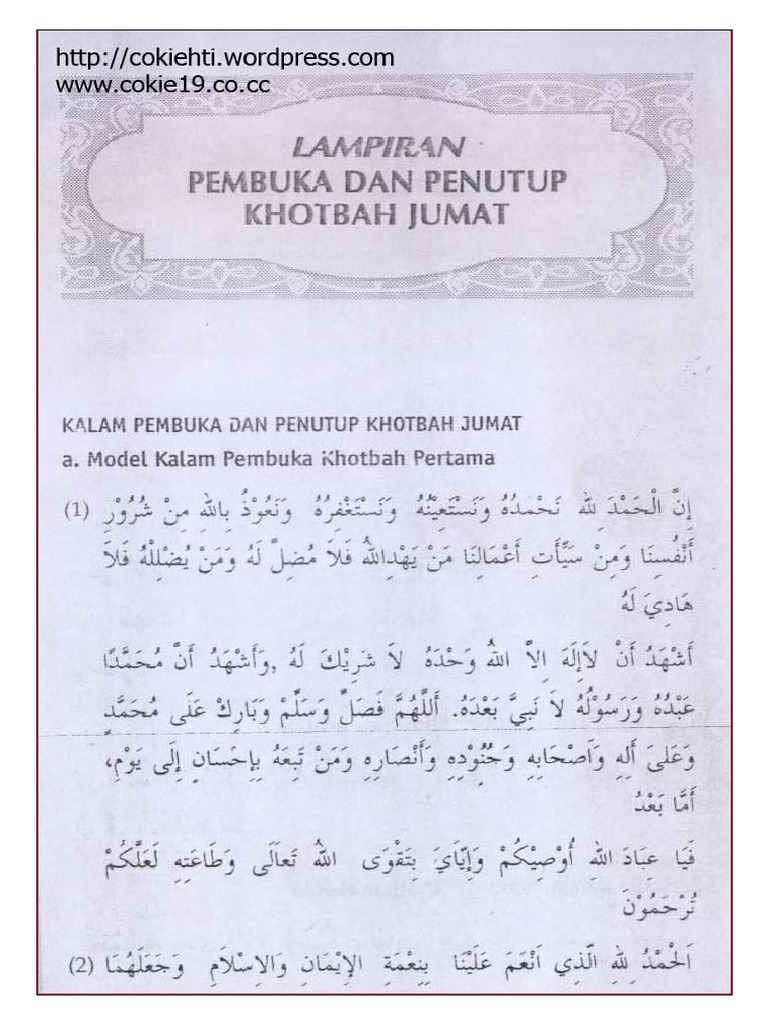 http://cokiehti.wordpress.com
www.cokie19.co.cc
LAMPIRAN
PEMBUKA DAN PENUTUP
KHOTBAH JUMAT
KALAM PEMBUKA DAN PENUTUP KHOTBAH JUMAT
a. Model Kalam Pembuka Khotbah Pertama
(1) إِنَّ الْحَمْدَ لِلهِ نَحْمَدُهُ وَنَسْتَعِيْنُهُ وَنَسْتَغْفِرُهُ وَنَعُوْذُ بِاللهِ مِنْ شُرُوْرِ
أَنْفُسِنَا وَمِنْ سَيِّأَتِ أَعْمَالِنَا مَنْ يَهْدِاللهُ فَلاَ مُضِلَّ لَهُ وَمَنْ يُضْلِلْهُ فَلاَ
هَادِيَ لَهُ
أَشْهَدُ أَنْ لاَإِلَهَ اِلاَّ اللهُ وَحْدَهُ لاَ شَرِيْكَ لَهُ ,وَأَشْهَدُ أَنَّ مُحَمَّدًا
عَبْدُهُ وَرَسُوْلُهُ لاَ نَبِيَّ بَعْدَهُ. أَللَّهُمَّ فَصَلِّ وَسَلِّمْ وَبَارِكْ عَلَى مُحَمَّدٍ
وَعَلَىَ أَلِهِ وَاَصْحَابِهِ وَجُنُوْدِهِ وَأَنْصَارِهِ وَمَنْ تَبِعَهُ بِإِحْسَانٍ إِلَى يَوْمِ،
أَمَّا بَعْدُ
فَيَا عِبَادَ اللهِ أُوْصِيْكُمْ وَإِيَّاَيَ بِتَقْوَى اللهُ تَعَالَى وَطَاعَتِهِ لَعَلَّكُمْ
تُرْحَمُوْنَ
(2) اَلْحَمْدُ لِلهِ الَّذِي اَنْعَمَ عَلَيْنَا بِنِعْمَةِ الإِيْمَانِ وَالاِسْلاَمِ وَجَعَلَهُمَا